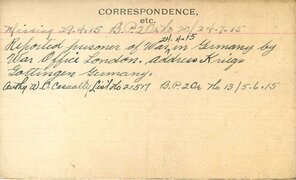 CORRESPONDENCE,
etc.
Missing 29.4.15 B.P.2 Or. No 21/24.7.15
Reported prisoner of War, in Germany by
24.4.15
War Office London. Address Kriegs
Gottingen Germany.
Authy W.O. Casualty List No 21517 B.P.2 Or No 13/5.6.15